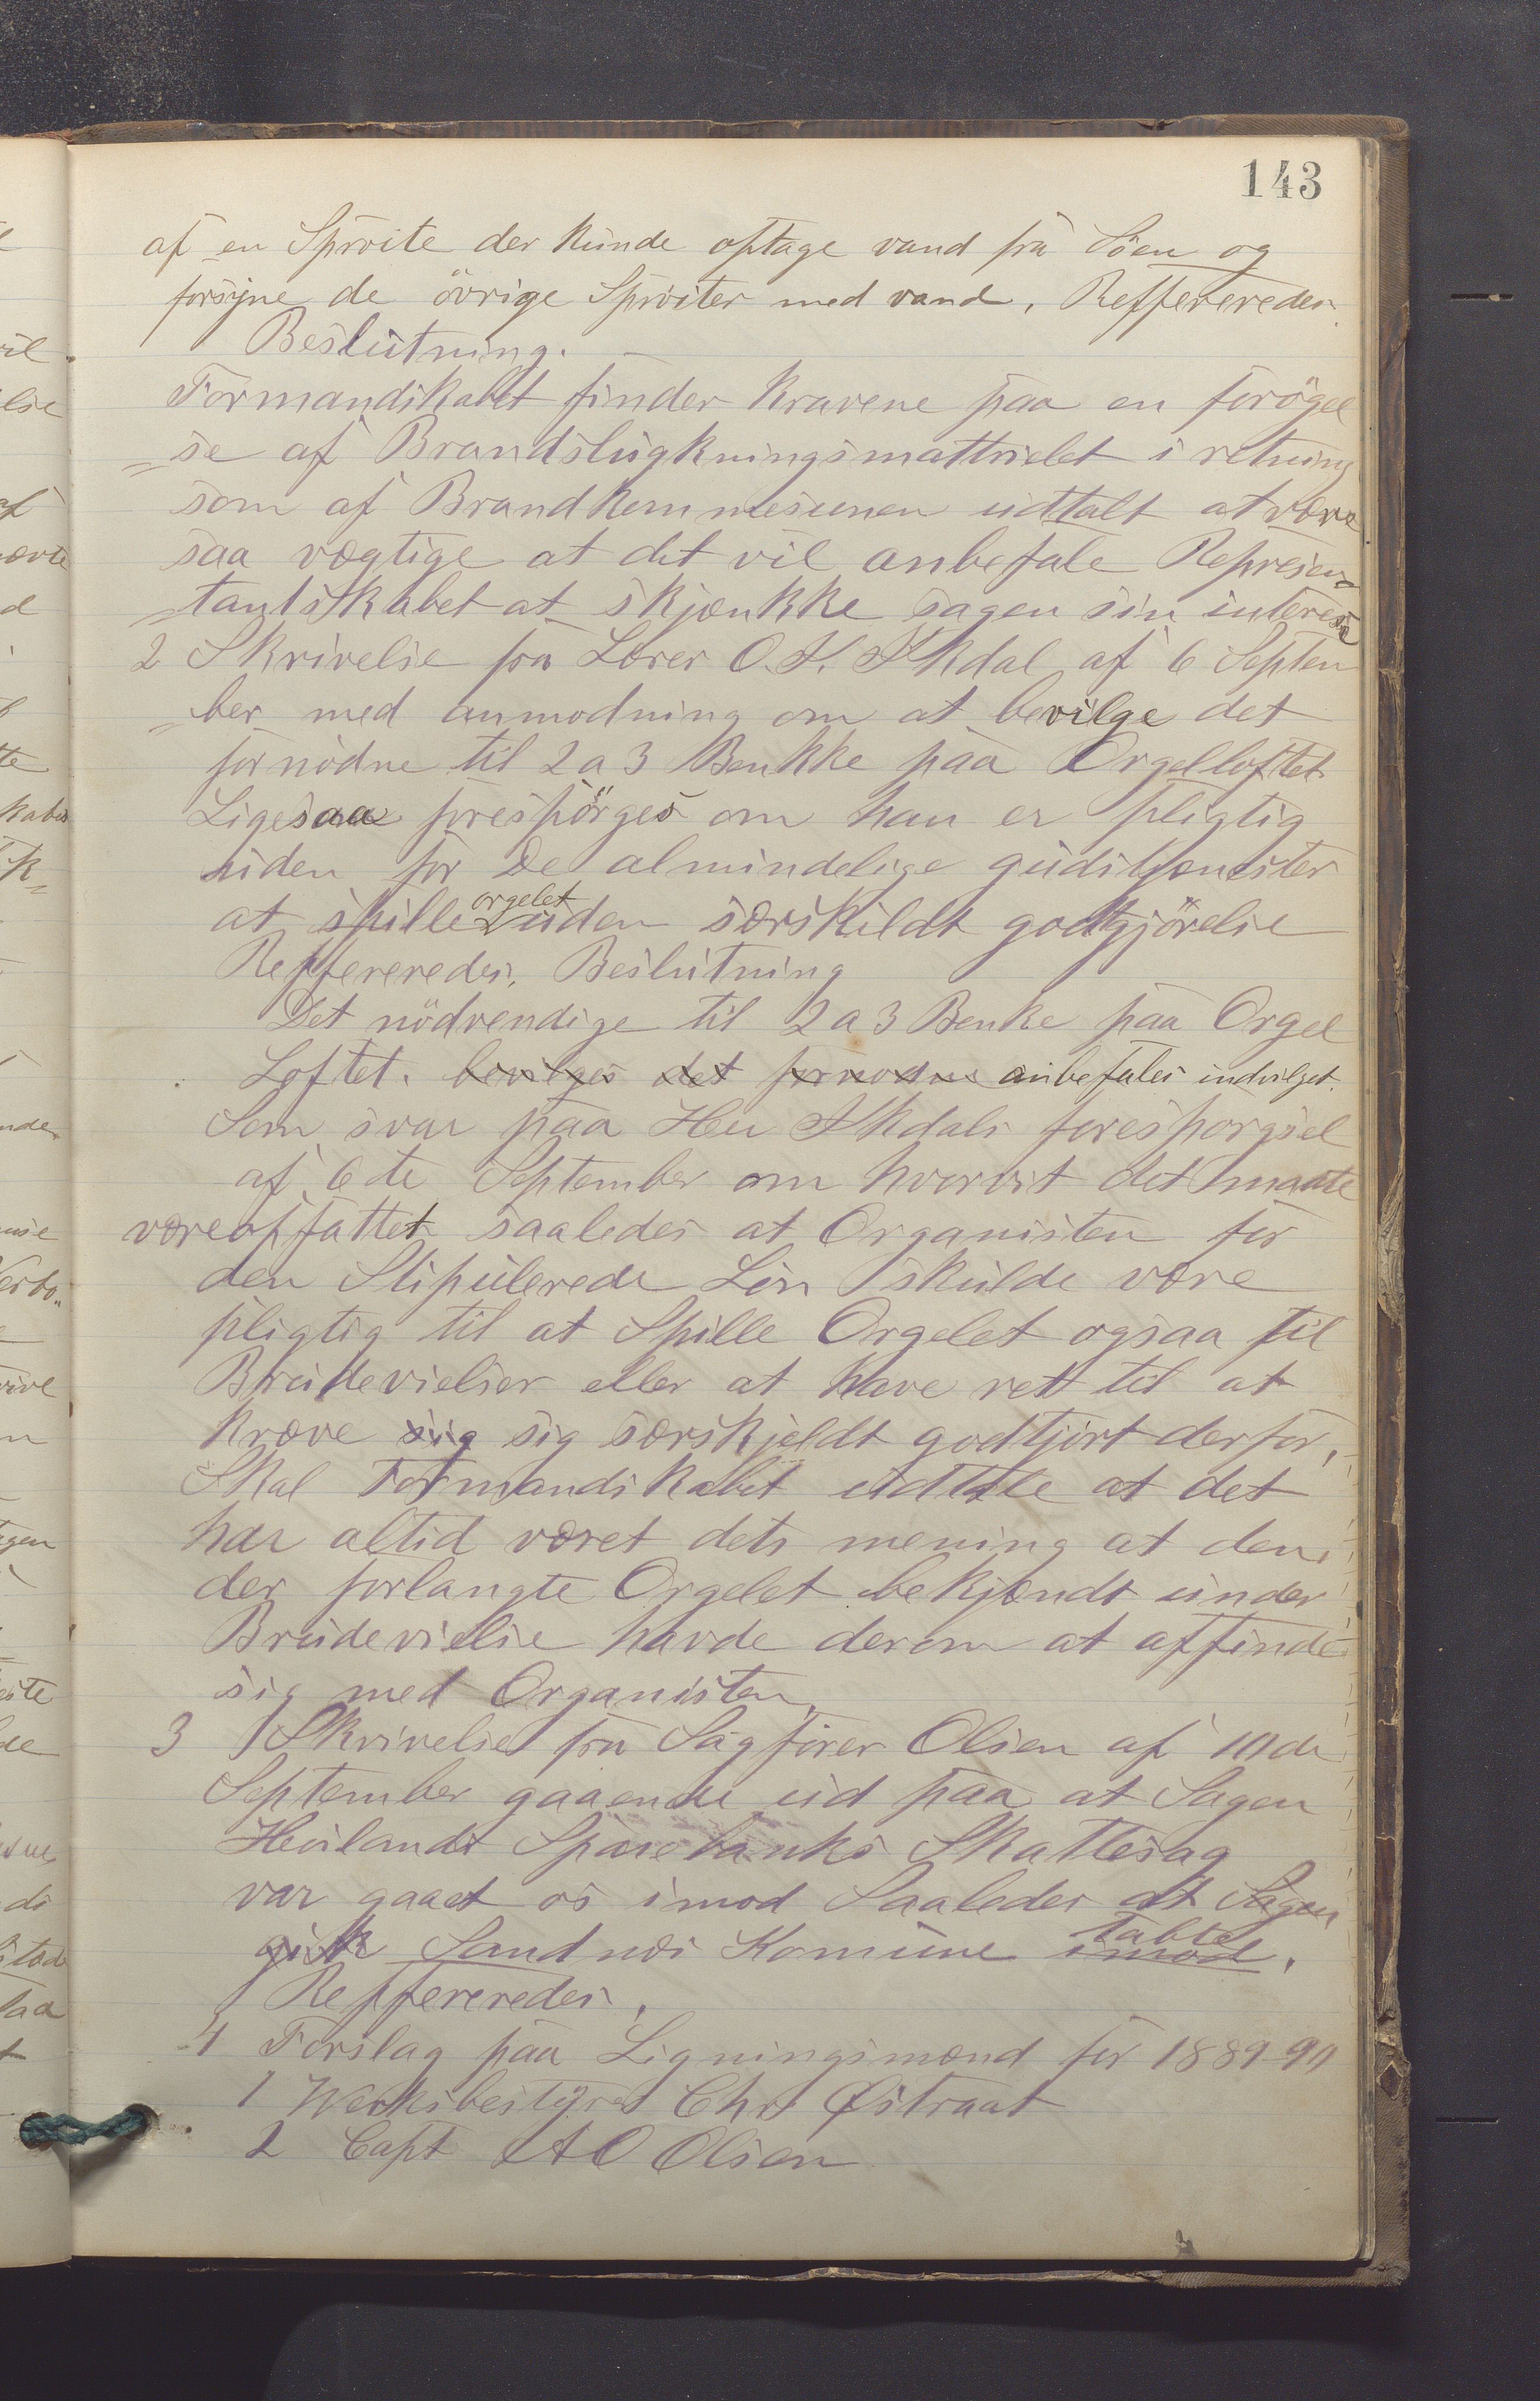 143
af en Sprøite der kunde optage vand fra Söen og
forsyne de övrige Sprøiter med vand. Reffereredes.
Beslutning.
Formandskabet finder kravene paa en forögel
se af Brandslugkningsmattrielet i retning
som af Brandkommesunen udtalt at være
saa vægtige at det vil anbefale Represen=
tantskabet at skjænkke sagen sin interesse
2 Skrivelse fra Lærer O. K. af 6 Septem
ber med anmodning om at bevilge det
fornödne til 2 a 3 Benkke paa Orgelloftet
Ligesaa forespörges om han er pligtig
uden for De almindelige gudstjenester
at spille orgelet uden særskildt godtgjörelse
Reffereredes. Beslutning
Det nödvendige til 2 a 3 Benke paa Orgel
Loftet. bevilges det fornødne anbefales indvilget.
Som svar paa Her forespørgsel
af 6te September om hvorvit det maatte
være opfattet saaledes at Organisten for
den Stipulerede Løn skulde være
pligtig til at Spille Orgelet ogsaa til
Brudevielser eller at have rett til at
kræve sig sig særskjeldt godtjort derfor,
Skal Formandskabet udtale at det
har altid været dets mening at den
der forlangte Orgelet bekjendt under
Brudevielse havde derom at affinde
sig med Organisten.
3 Skrivelse fra Sagfører Olsen af
September gaaende ud paa at Sagen
Høilands Sparebanks Skattesag
var gaaet os imod Saaledes at Sagen
gik Sandnæs Komune imod. Tabte
Reffereredes.
4 Forslag paa Ligningsmænd for 1889-90
1 Værksbestyrer Chr Østraat
2 Capt A O Olsen